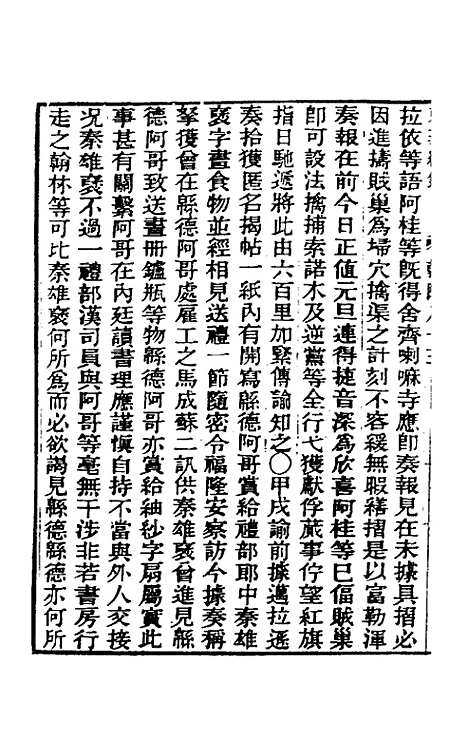 拉依等語阿桂等旣得舍齊喇嘛寺應卽奏報見在未據具摺必
因進擣賊巢爲埽穴擒渠之計刻不容緩無暇繕摺是以富勒渾
奏報在前今日正值元旦連得捷音深爲欣喜阿桂等已偪賊巢
卽可設法擒捕索諾木及逆黨等全行弋獲獻俘蕆事佇望紅旗
指日馳遞將此由六百里加緊傳諭知之○甲戌諭前據邁拉遜
奏拾獲匿名揭帖一紙內有開寫緜德阿哥賞給禮部郎中秦雄
褎字畫食物並經相見送禮一節隨密令福隆安察訪今據奏稱
拏獲曾在緜德阿哥處雇工之馬成蘇二訊供秦雄褎曾進見緜
德阿哥致送畫冊鑪瓶等物緜德阿哥亦賞給紬紗字扇屬實此
事甚有關繫阿哥在內廷讀書理應謹愼自持不當與外人交接
况秦雄褎不過一禮部漢司員與阿哥等毫無干涉非若書房行
走之翰林等可比秦雄褎何所爲而必欲謁見緜德緜德亦何所